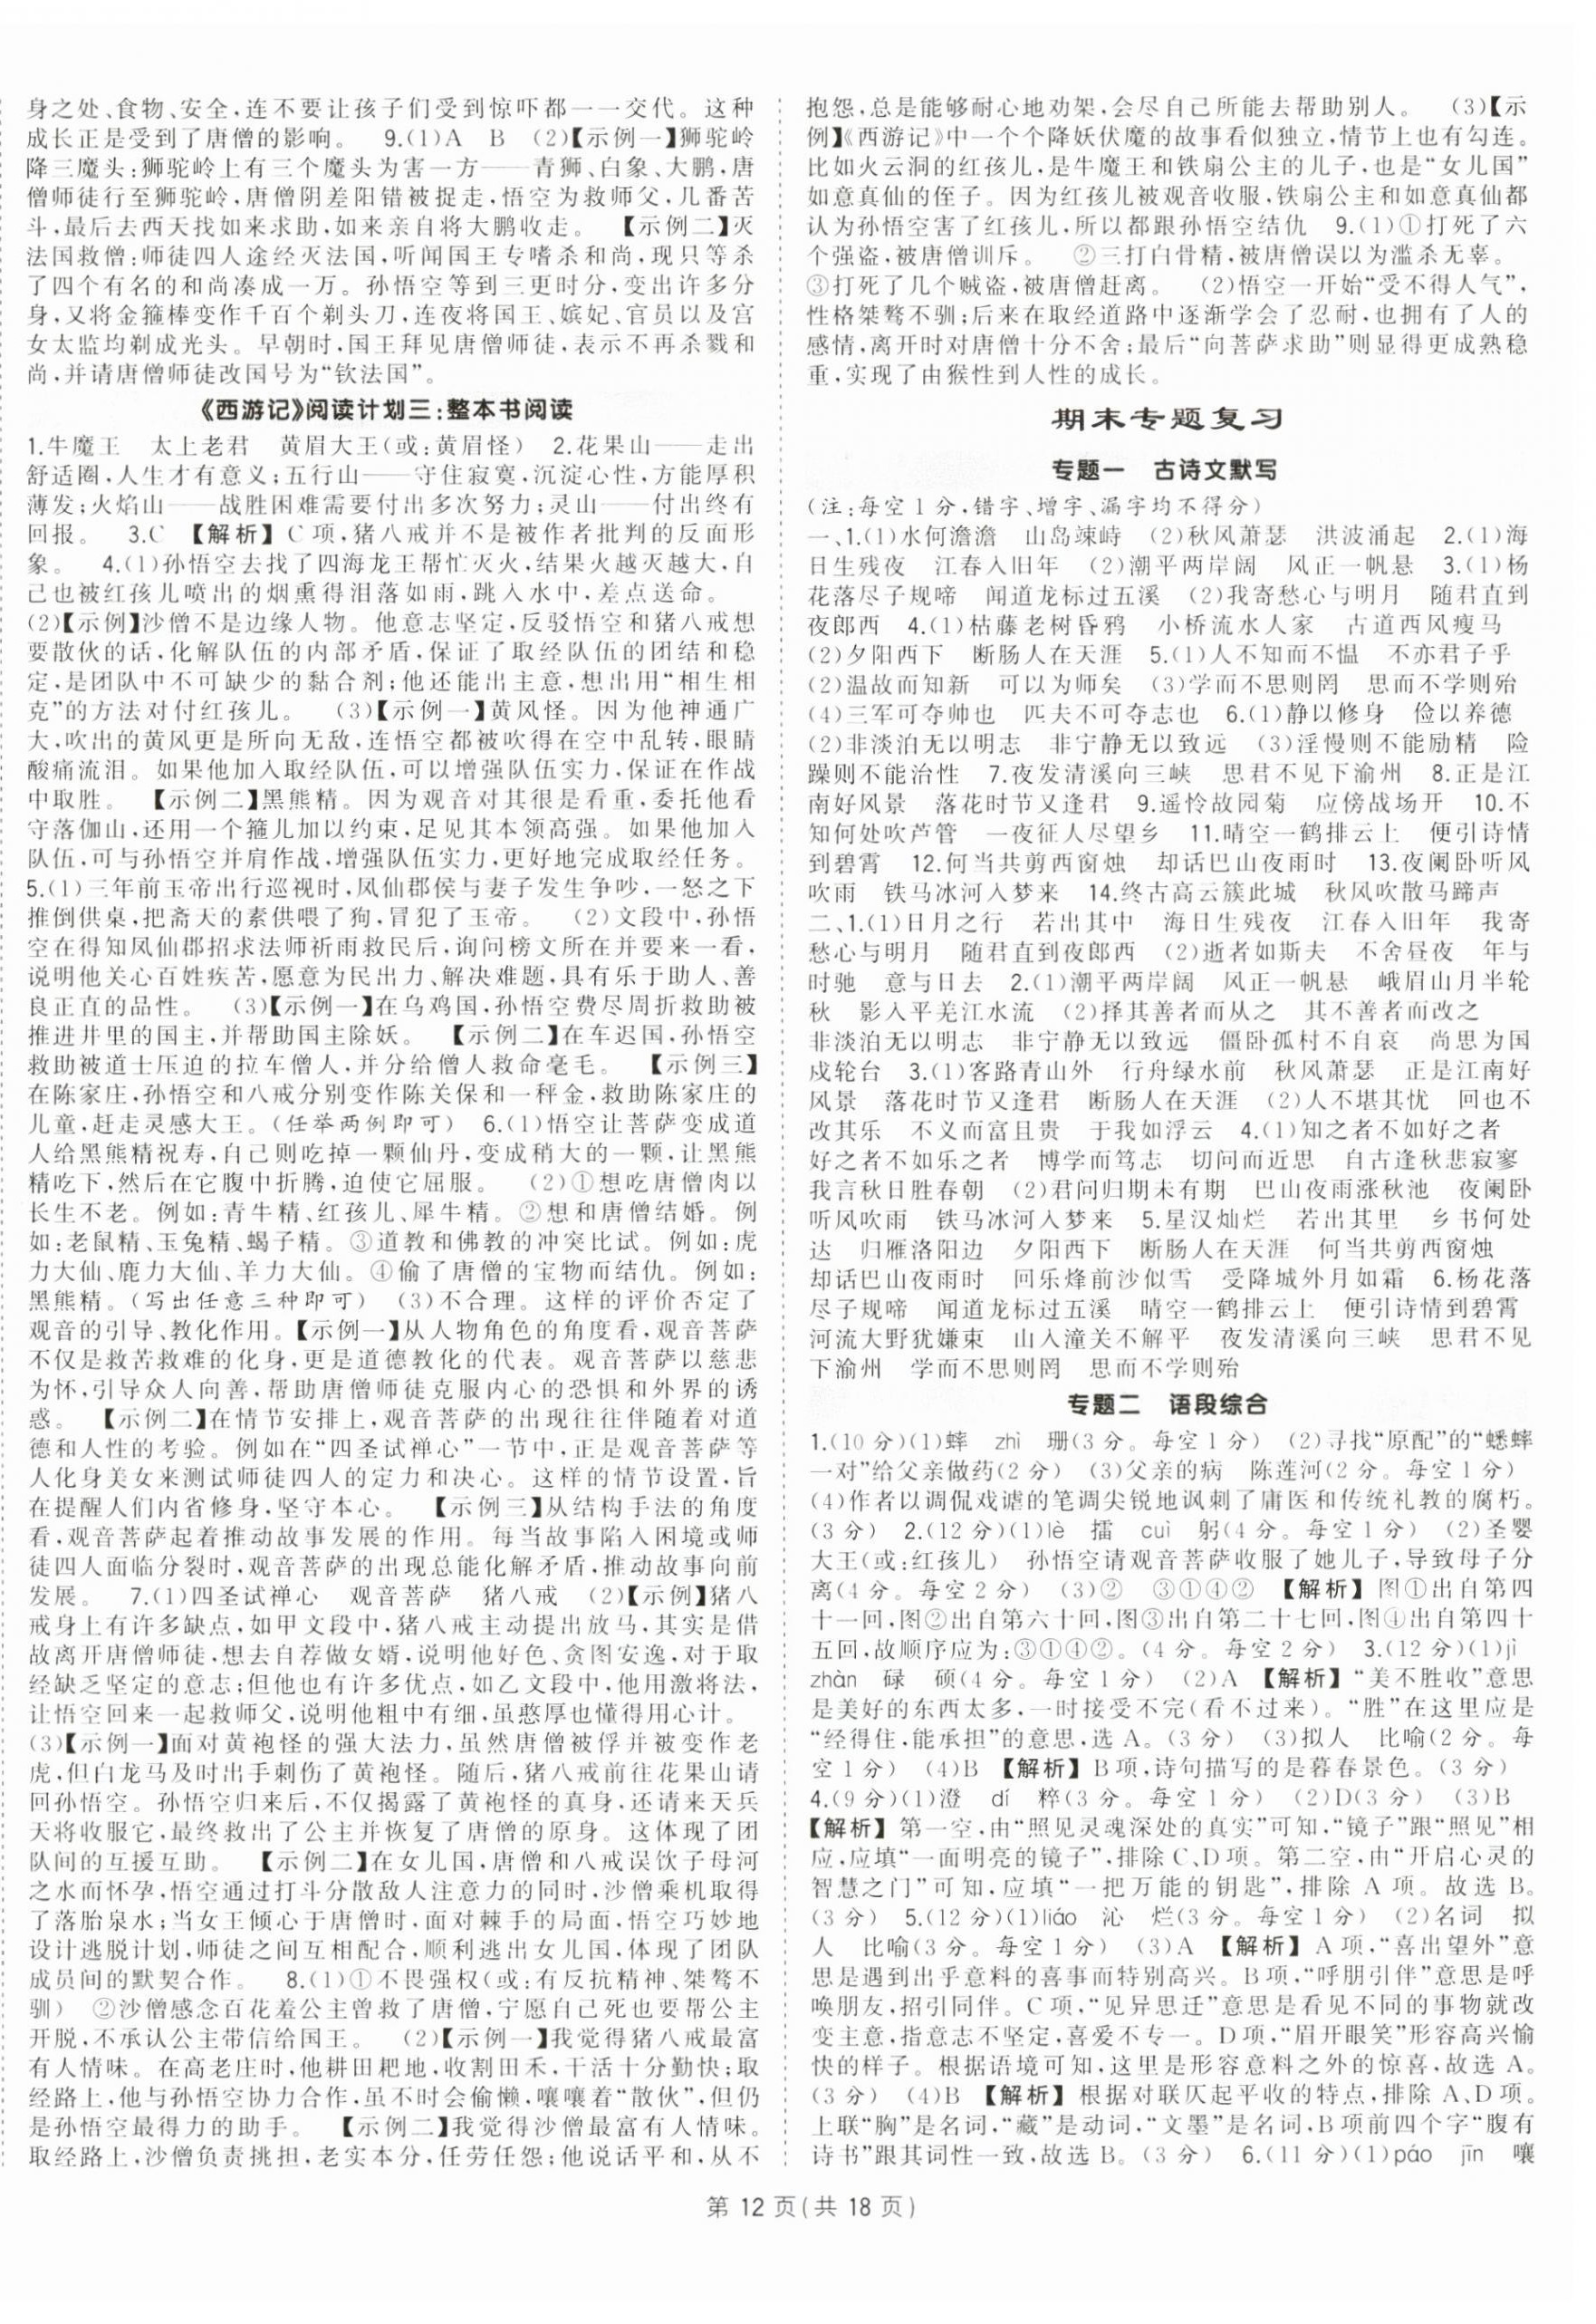 身之处、食物、安全,连不要让孩子们受到惊吓都一一交代。这种
成长正是受到了唐僧的影响。 9.(1)A B (2)【示例一】狮驼岭
降三魔头:狮驼岭上有三个魔头为害一方——青狮、白象、大鹏,唐
僧师徒行至狮驼岭,唐僧阴差阳错被捉走,悟空为救师父,几番苦
斗,最后去西天找如来求助,如来亲自将大鹏收走。 【示例二】灭
法国救僧:师徒四人途经灭法国,听闻国王专嗜杀和尚,现只等杀
了四个有名的和尚凑成一万。孙悟空等到三更时分,变出许多分
身,又将金箍棒变作千百个剃头刀,连夜将国王、嫔妃、官员以及宫
女太监均剃成光头。早朝时,国王拜见唐僧师徒,表示不再杀戮和
尚,并请唐僧师徒改国号为“钦法国”。
《西游记》阅读计划三:整本书阅读
1.牛魔王 太上老君 黄眉大王(或:黄眉怪) 2.花果山——走出
舒适圈,人生才有意义;五行山——守住寂寞,沉淀心性,方能厚积
薄发;火焰山——战胜困难需要付出多次努力;灵山——付出终有
回报。 3.C 【解析】C项,猪八戒并不是被作者批判的反面形
象。 4.(1)孙悟空去找了四海龙王帮忙灭火,结果火越灭越大,自
己也被红孩儿喷出的烟熏得泪落如雨,跳入水中,差点送命。
(2)【示例】沙僧不是边缘人物。他意志坚定,反驳悟空和猪八戒想
要散伙的话,化解队伍的内部矛盾,保证了取经队伍的团结和稳
定,是团队中不可缺少的黏合剂;他还能出主意,想出用“相生相
克”的方法对付红孩儿。 (3)【示例一】黄风怪。因为他神通广
大,吹出的黄风更是所向无敌,连悟空都被吹得在空中乱转,眼睛
酸痛流泪。如果他加入取经队伍,可以增强队伍实力,保证在作战
中取胜。 【示例二】黑熊精。因为观音对其很是看重,委托他看
守落伽山,还用一个箍儿加以约束,足见其本领高强。如果他加入
队伍,可与孙悟空并肩作战,增强队伍实力,更好地完成取经任务。
5.(1)三年前玉帝出行巡视时,凤仙郡侯与妻子发生争吵,一怒之下
推倒供桌,把斋天的素供喂了狗,冒犯了玉帝。 (2)文段中,孙悟
空在得知凤仙郡招求法师祈雨救民后,询问榜文所在并要来一看,
说明他关心百姓疾苦,愿意为民出力、解决难题,具有乐于助人、善
良正直的品性。 (3)【示例一】在乌鸡国,孙悟空费尽周折救助被
推进井里的国主,并帮助国主除妖。 【示例二】在车迟国,孙悟空
救助被道士压迫的拉车僧人,并分给僧人救命毫毛。 【示例三】
在陈家庄,孙悟空和八戒分别变作陈关保和一秤金,救助陈家庄的
儿童,赶走灵感大王。(任举两例即可) 6.(1)悟空让菩萨变成道
人给黑熊精祝寿,自己则吃掉一颗仙丹,变成稍大的一颗,让黑熊
精吃下,然后在它腹中折腾,迫使它屈服。 (2)①想吃唐僧肉以
长生不老。例如:青牛精、红孩儿、犀牛精。②想和唐僧结婚。例
如:老鼠精、玉兔精、蝎子精。③道教和佛教的冲突比试。例如:虎
力大仙、鹿力大仙、羊力大仙。④偷了唐僧的宝物而结仇。例如:
黑熊精。(写出任意三种即可) (3)不合理。这样的评价否定了
观音的引导、教化作用。【示例一】从人物角色的角度看,观音菩萨
不仅是救苦救难的化身,更是道德教化的代表。观音菩萨以慈悲
为怀,引导众人向善,帮助唐僧师徒克服内心的恐惧和外界的诱
惑。 【示例二】在情节安排上,观音菩萨的出现往往伴随着对道
德和人性的考验。例如在“四圣试禅心”一节中,正是观音菩萨等
人化身美女来测试师徒四人的定力和决心。这样的情节设置,旨
在提醒人们内省修身,坚守本心。 【示例三】从结构手法的角度
看,观音菩萨起着推动故事发展的作用。每当故事陷入困境或师
徒四人面临分裂时,观音菩萨的出现总能化解矛盾,推动故事向前
发展。 7.(1)四圣试禅心 观音菩萨 猪八戒 (2)【示例】猪八
戒身上有许多缺点,如甲文段中,猪八戒主动提出放马,其实是借
故离开唐僧师徒,想去自荐做女婿,说明他好色、贪图安逸,对于取
经缺乏坚定的意志;但他也有许多优点,如乙文段中,他用激将法,
让悟空回来一起救师父,说明他粗中有细,虽憨厚也懂得用心计。
(3)【示例一】面对黄袍怪的强大法力,虽然唐僧被俘并被变作老
虎,但白龙马及时出手刺伤了黄袍怪。随后,猪八戒前往花果山请
回孙悟空。孙悟空归来后,不仅揭露了黄袍怪的真身,还请来天兵
天将收服它,最终救出了公主并恢复了唐僧的原身。这体现了团
队间的互援互助。 【示例二】在女儿国,唐僧和八戒误饮子母河
之水而怀孕,悟空通过打斗分散敌人注意力的同时,沙僧乘机取得
了落胎泉水;当女王倾心于唐僧时,面对棘手的局面,悟空巧妙地
设计逃脱计划,师徒之间互相配合,顺利逃出女儿国,体现了团队
成员间的默契合作。 8.(1)①不畏强权(或:有反抗精神、桀骜不
驯) ②沙僧感念百花羞公主曾救了唐僧,宁愿自己死也要帮公主
开脱,不承认公主带信给国王。 (2)【示例一】我觉得猪八戒最富
有人情味。在高老庄时,他耕田耙地,收割田禾,干活十分勤快;取
经路上,他与孙悟空协力合作,虽不时会偷懒,嚷嚷着“散伙”,但仍
是孙悟空最得力的助手。 【示例二】我觉得沙僧最富有人情味。
取经路上,沙僧负责挑担,老实本分,任劳任怨;他说话平和,从不
抱怨,总是能够耐心地劝架,会尽自己所能去帮助别人。 (3)【示
例】《西游记》中一个个降妖伏魔的故事看似独立,情节上也有勾连。
比如火云洞的红孩儿,是牛魔王和铁扇公主的儿子,也是“女儿国”
如意真仙的侄子。因为红孩儿被观音收服,铁扇公主和如意真仙都
认为孙悟空害了红孩儿,所以都跟孙悟空结仇 9.(1)①打死了六
个强盗,被唐僧训斥。 ②三打白骨精,被唐僧误以为滥杀无辜。
③打死了几个贼盗,被唐僧赶离。 (2)悟空一开始“受不得人气”,
性格桀骜不驯;后来在取经道路中逐渐学会了忍耐,也拥有了人的
感情,离开时对唐僧十分不舍;最后“向菩萨求助”则显得更成熟稳
重,实现了由猴性到人性的成长。
期末专题复习
专题一 古诗文默写
(注:每空1分,错字、增字、漏字均不得分)
一、1.(1)水何澹澹 山岛竦峙 (2)秋风萧瑟 洪波涌起 2.(1)海
日生残夜 江春入旧年 (2)潮平两岸阔 风正一帆悬 3.(1)杨
花落尽子规啼 闻道龙标过五溪 (2)我寄愁心与明月 随君直到
夜郎西 4.(1)枯藤老树昏鸦 小桥流水人家 古道西风瘦马
(2)夕阳西下 断肠人在天涯 5.(1)人不知而不愠 不亦君子乎
(2)温故而知新 可以为师矣 (3)学而不思则罔 思而不学则殆
(4)三军可夺帅也 匹夫不可夺志也 6.(1)静以修身 俭以养德
(2)非淡泊无以明志 非宁静无以致远 (3)淫慢则不能励精 险
躁则不能治性 7.夜发清溪向三峡 思君不见下渝州 8.正是江
南好风景 落花时节又逢君 9.遥怜故园菊 应傍战场开 10.不
知何处吹芦管 一夜征人尽望乡 11.晴空一鹤排云上 便引诗情
到碧霄 12.何当共剪西窗烛 却话巴山夜雨时 13.夜阑卧听风
吹雨 铁马冰河入梦来 14.终古高云簇此城 秋风吹散马蹄声
二、1.(1)日月之行 若出其中 海日生残夜 江春入旧年 我寄
愁心与明月 随君直到夜郎西 (2)逝者如斯夫 不舍昼夜 年与
时驰 意与日去 2.(1)潮平两岸阔 风正一帆悬 峨眉山月半轮
秋 影入平羌江水流 (2)择其善者而从之 其不善者而改之
非淡泊无以明志 非宁静无以致远 僵卧孤村不自哀 尚思为国
戍轮台 3.(1)客路青山外 行舟绿水前 秋风萧瑟 正是江南好
风景 落花时节又逢君 断肠人在天涯 (2)人不堪其忧 回也不
改其乐 不义而富且贵 于我如浮云 4.(1)知之者不如好之者
好之者不如乐之者 博学而笃志 切问而近思 自古逢秋悲寂寥
我言秋日胜春朝 (2)君问归期未有期 巴山夜雨涨秋池 夜阑卧
听风吹雨 铁马冰河入梦来 5.星汉灿烂 若出其里 乡书何处
达 归雁洛阳边 夕阳西下 断肠人在天涯 何当共剪西窗烛
却话巴山夜雨时 回乐烽前沙似雪 受降城外月如霜 6.杨花落
尽子规啼 闻道龙标过五溪 晴空一鹤排云上 便引诗情到碧霄
河流大野犹嫌束 山入潼关不解平 夜发清溪向三峡 思君不见
下渝州 学而不思则罔 思而不学则殆
专题二 语段综合
1.(10分)(1)蟀 zhì 珊(3分。每空1分) (2)寻找“原配”的“蟋蟀
一对”给父亲做药(2分) (3)父亲的病 陈莲河(2分。每空1分)
(4)作者以调侃戏谑的笔调尖锐地讽刺了庸医和传统礼教的腐朽。
(3分) 2.(12分)(1)lè 擂 cuì 躬(4分。每空1分) (2)圣婴
大王(或:红孩儿) 孙悟空请观音菩萨收服了她儿子,导致母子分
离(4分。每空2分) (3)② ③①④② 【解析】图①出自第四
十一回,图②出自第六十回,图③出自第二十七回,图④出自第四十
五回,故顺序应为:③①④②。(4分。每空2分) 3.(12分)(1)jì
zhàn 碌 硕(4分。每空1分) (2)A 【解析】“美不胜收”意思
是美好的东西太多,一时接受不完(看不过来)。“胜”在这里应是
“经得住,能承担”的意思,选A。(3分) (3)拟人 比喻(2分。每
空1分) (4)B 【解析】B项,诗句描写的是暮春景色。(3分)
4.(9分)(1)澄 dí 粹(3分。每空1分) (2)D(3分) (3)B
【解析】第一空,由“照见灵魂深处的真实”可知,“镜子”跟“照见”相
应,应填“一面明亮的镜子”,排除C、D项。第二空,由“开启心灵的
智慧之门”可知,应填“一把万能的钥匙”,排除A项。故选B。
(3分) 5.(12分)(1)liáo 沁 烂(3分。每空1分) (2)名词 拟
人 比喻(3分。每空1分) (3)A 【解析】A项,“喜出望外”意
思是遇到出乎意料的喜事而特别高兴。B项,“呼朋引伴”意思是呼
唤朋友,招引同伴。C项,“见异思迁”意思是看见不同的事物就改
变主意,指意志不坚定,喜爱不专一。D项,“眉开眼笑”形容高兴愉
快的样子。根据语境可知,这里是形容意料之外的惊喜,故选A。
(3分) (4)B 【解析】根据对联仄起平收的特点,排除A、D项。
上联“胸”是名词,“藏”是动词,“文墨”是名词,B项前四个字“腹有
诗书”跟其词性一致,故选B。(3分) 6.(11分)(1)páo jīn 嚷
第12页(共18页)